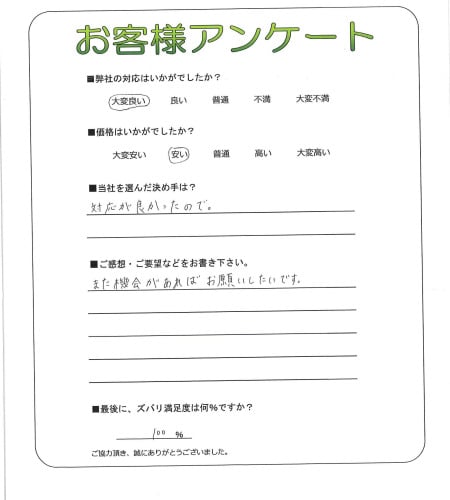 お客様アンケート
■弊社の対応はいかがでしたか?
大変良い 良い 普通 不満 大変不満
■価格はいかがでしたか?
大変安い 安い 普通 高い 大変高い
■当社を選んだ決め手は?
対応が良かったので。
■ご感想・ご要望などをお書き下さい。
また機会があればお願いしたいです。
■最後に、ズバリ満足度は何%ですか?
100 %
ご協力頂き、誠にありがとうございました。